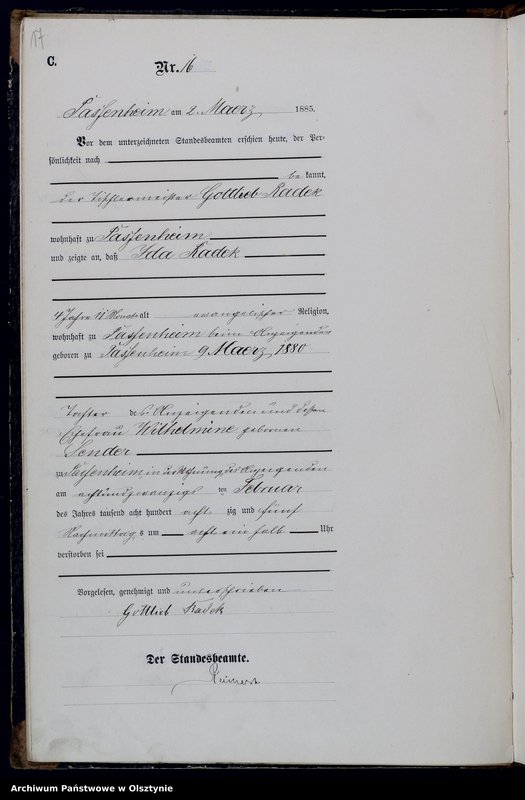 17
C.
Nr. 16
Passenheim am 2. Maerz 1885.
Vor dem unterzeichneten Standesbeamten erschien heute, der Per-
sönlichkeit nach
be kannt,
der Tischlermeister Gottlieb Radek
wohnhaft zu Passenheim
und zeigte an, daß Ida Radek
4 Jahre 11 Monate alt evangelischer Religion,
wohnhaft zu Passenheim beim Anzeigenden
geboren zu Passenheim 9 Maerz 1880
Tochter des Anzeigenden und dessen
Ehefrau Wilhelmine geborenen
Sender
zu Passenheim in der Wohnung des Anzeigenden
am achtundzwanzigsten Februar
des Jahres tausend acht hundert acht zig und fünf
Nachmittags um acht ein halb Uhr
verstorben sei
Vorgelesen, genehmigt und unterschrieben
Gottlieb Radek
Der Standesbeamte.
Archiwum Państwowe w Olsztynie